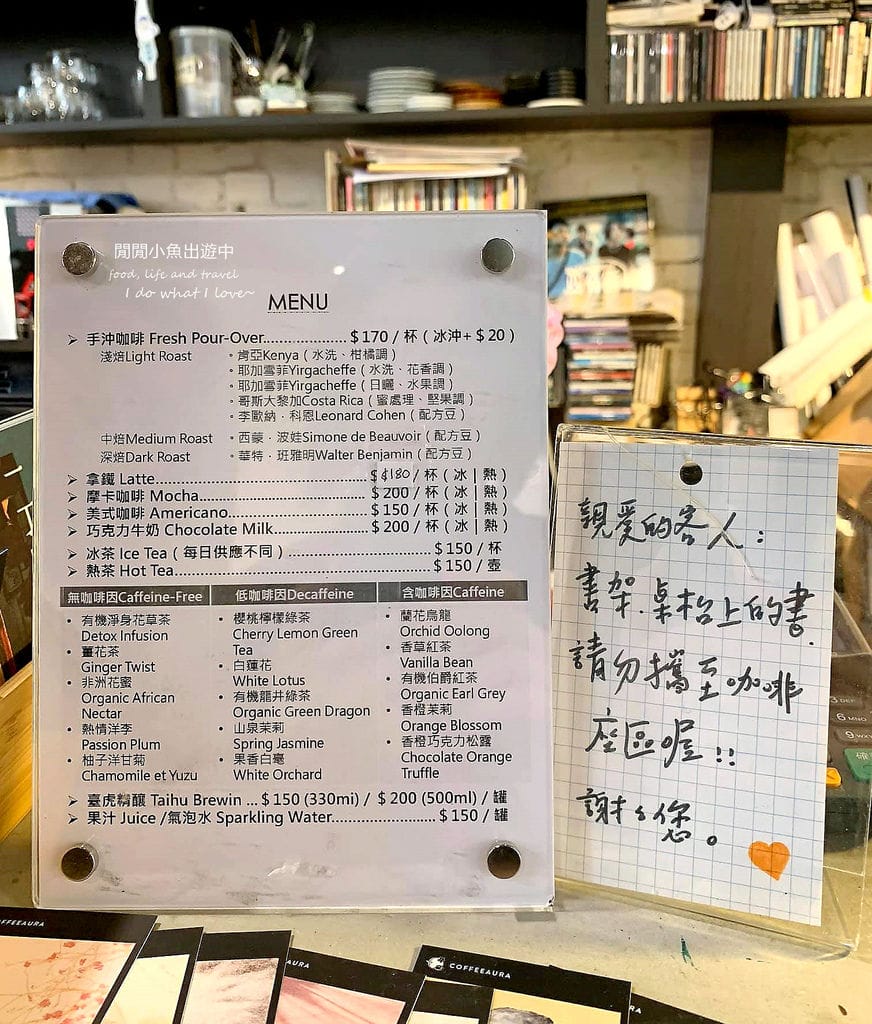 閒閒小魚出遊中
food, life and travel
I do what I love~
MENU
➤ 手沖咖啡 Fresh Pour-Over.................$170 / 杯 ( 冰沖+$20 )
淺焙Light Roast
◦肯亞Kenya ( 水洗、柑橘調 )
◦耶加雪菲Yirgacheffe ( 水洗、花香調 )
◦耶加雪菲Yirgacheffe ( 日曬、水果調 )
◦哥斯大黎加Costa Rica ( 蜜處理、堅果調 )
◦李歐納・科恩Leonard Cohen ( 配方豆 )
中焙Medium Roast ◦西蒙・波娃Simone de Beauvoir ( 配方豆 )
深焙Dark Roast ◦華特・班雅明Walter Benjamin ( 配方豆 )
➤ 拿鐵 Latte.................$$180 / 杯 ( 冰 | 熱 )
➤ 摩卡咖啡 Mocha.................$200 / 杯 ( 冰 | 熱 )
➤ 美式咖啡 Americano.................$150 / 杯 ( 冰 | 熱 )
➤ 巧克力牛奶 Chocolate Milk.................$200 / 杯 ( 冰 | 熱 )
➤ 冰茶 Ice Tea ( 每日供應不同 ) .................$150 / 杯
➤ 熱茶 Hot Tea.................$150 / 壺
無咖啡因Caffeine-Free
• 有機淨身花草茶
Detox Infusion
• 薑花茶
Ginger Twist
• 非洲花蜜
Organic African
Nectar
• 熱情洋李
Passion Plum
• 柚子洋甘菊
Chamomile et Yuzu
低咖啡因Decaffeine
• 櫻桃檸檬綠茶
Cherry Lemon Green
Tea
• 白蓮花
White Lotus
• 有機龍井綠茶
Organic Green Dragon
• 山泉茉莉
Spring Jasmine
• 果香白毫
White Orchard
含咖啡因Caffeine
• 蘭花烏龍
Orchid Oolong
• 香草紅茶
Vanilla Bean
• 有機伯爵紅茶
Organic Earl Grey
• 香橙茉莉
Orange Blossom
• 香橙巧克力松露
Chocolate Orange
Truffle
➤ 臺虎精釀 Taihu Brewin ...$150 (330mi) / $200 (500ml) / 罐
➤ 果汁 Juice /氣泡水 Sparkling Water.................$150 / 罐
親愛的客人：
書架.桌枱上的書.
請勿攜至咖啡
座區喔!!
謝々您。
COFFEEAURA
COFFEEAURA